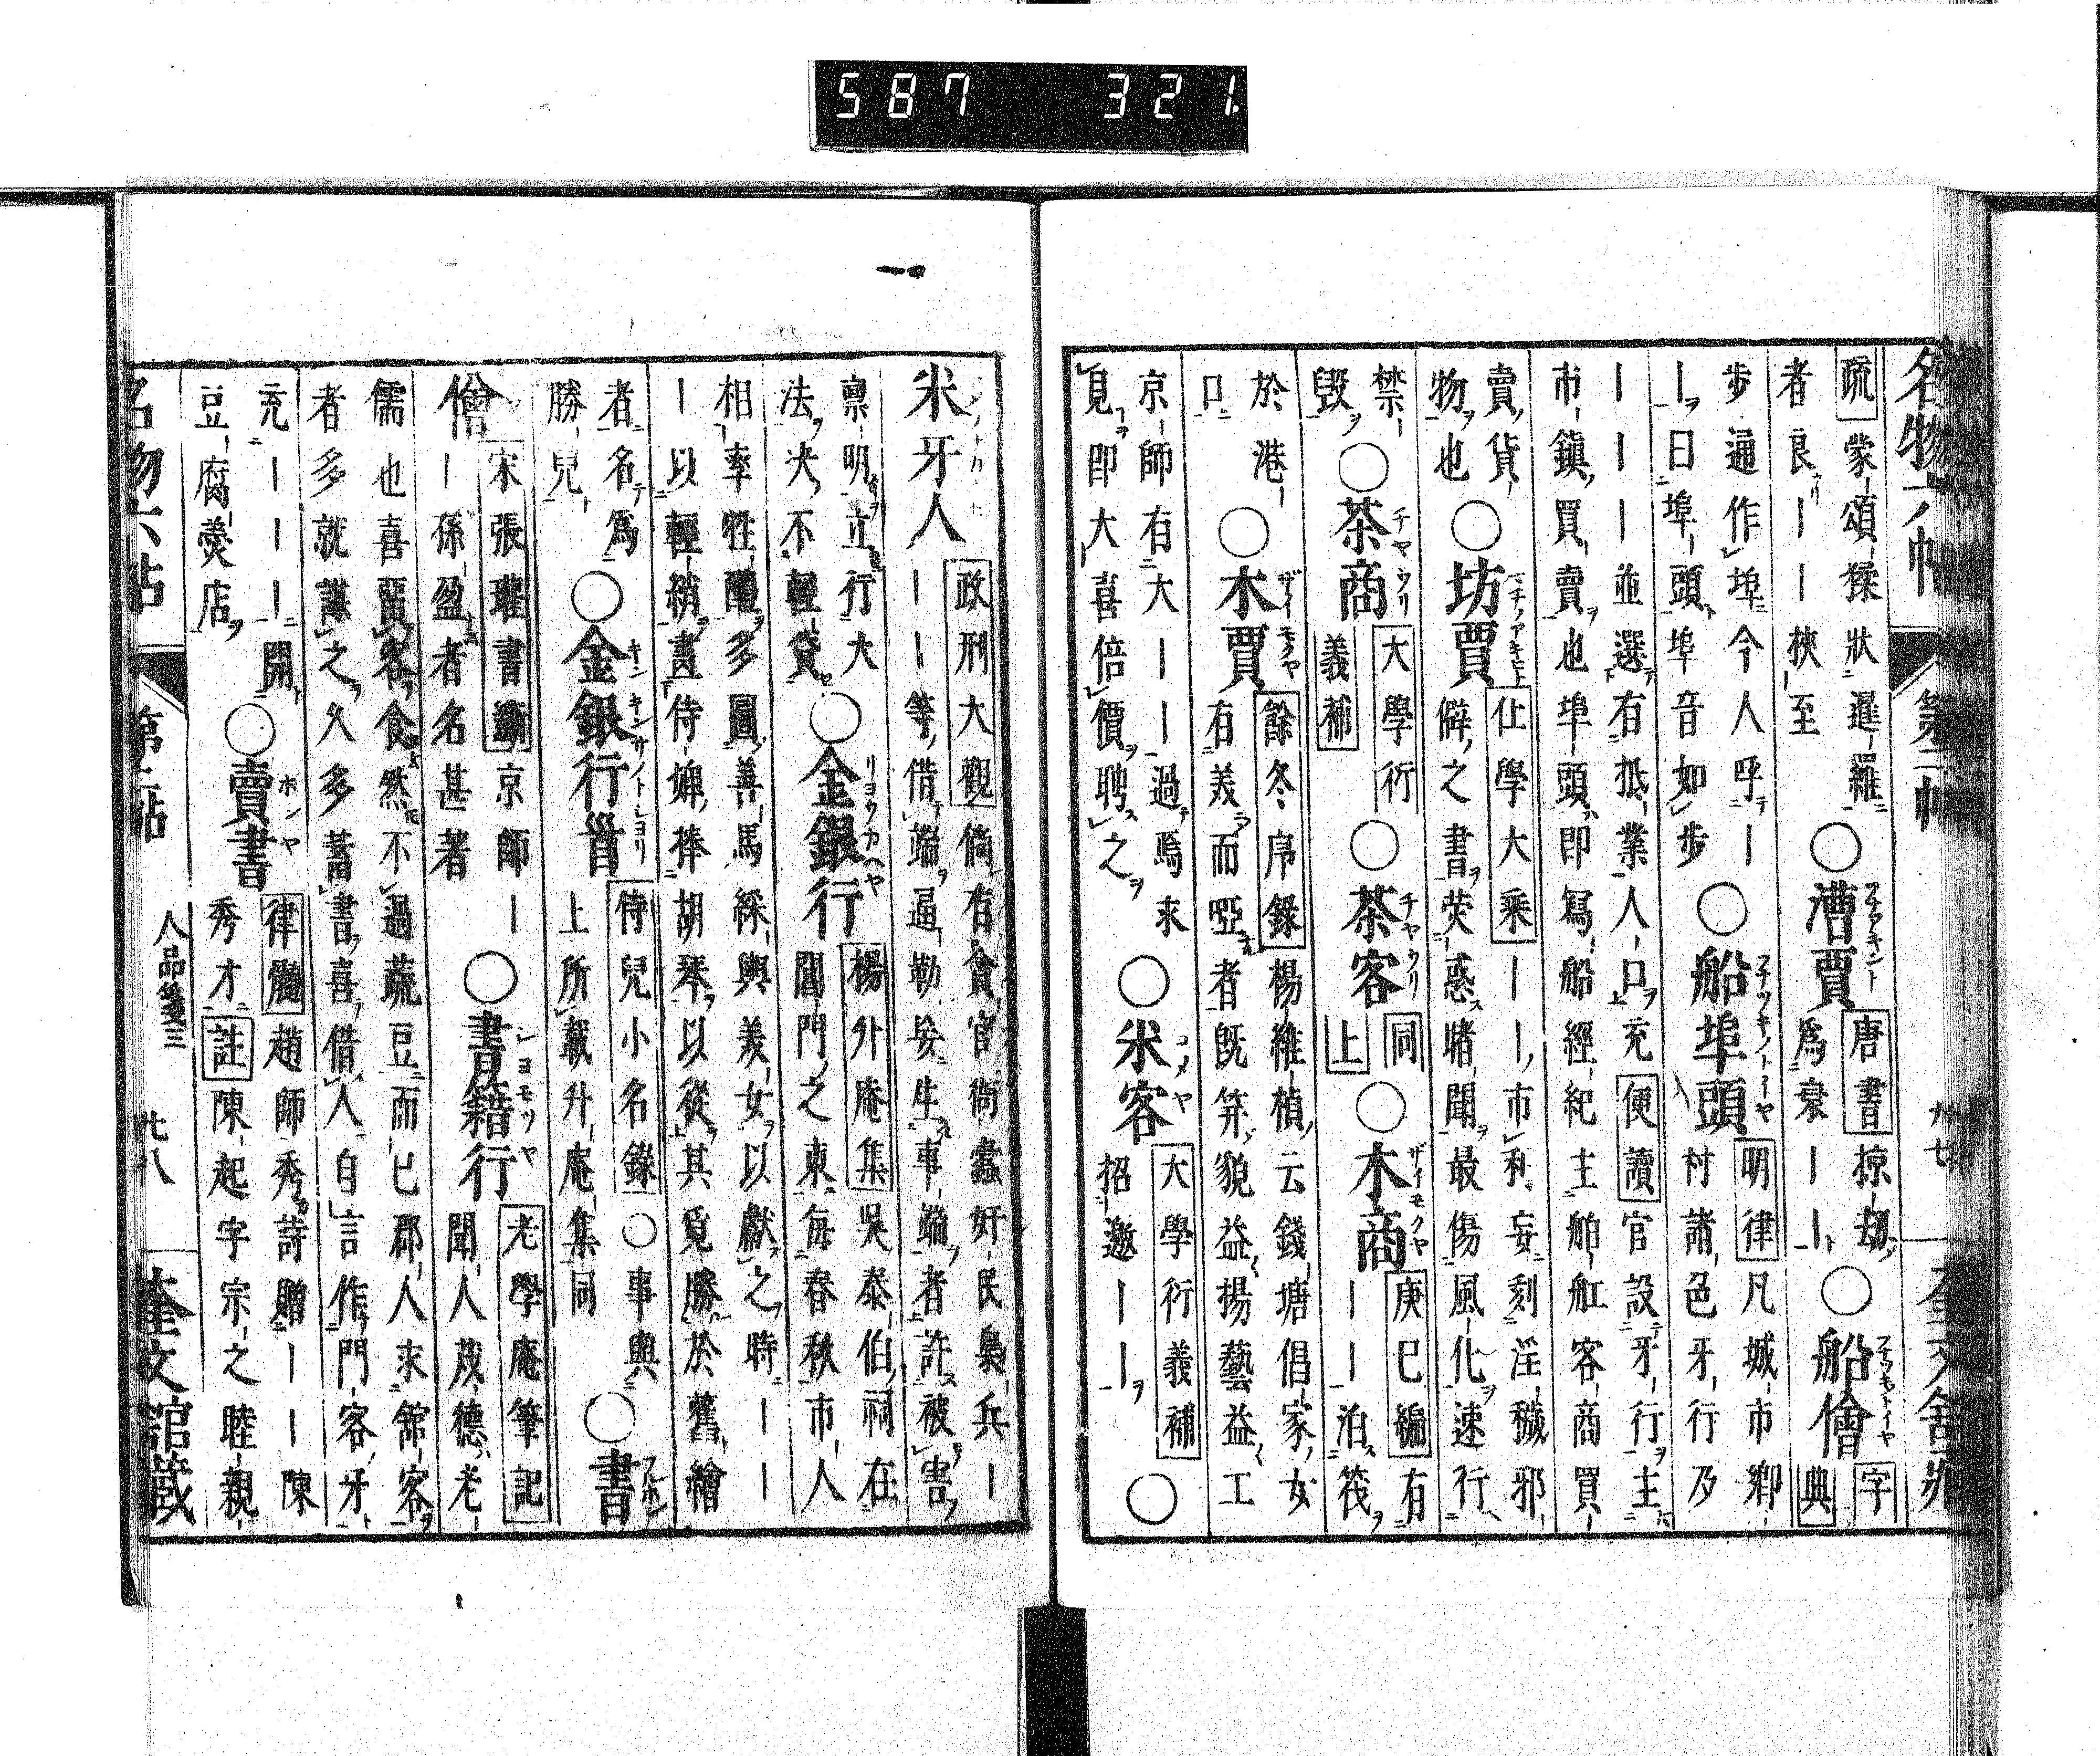 名物六帖　第二帖
疏蒙頌猱狀暹羅
者良｜｜挾至
○漕賈
唐書掠劫
為衆｜｜
○船儈
字
典
步遍作埠今人呼｜
｜曰埠頭埠音如步
○船埠頭
明律凡城市鄉
村諸色牙行及
｜｜｜並選有抵業人口充便讀官設牙行主
市鎮買賣也埠頭即寫船經紀主舶舡客商買
賣貨
物也
○坊賈
仕學大乘｜｜市利妄刻淫穢邪
僻之書熒惑睹聞最傷風化速行
禁
毀
○茶商
大學衍
義補
○茶客
同
上
○木商
庚巳編有
｜｜泊筏
於港
口
○木賈
餘冬序録楊維楨云錢塘倡家女
有義而啞者既笄貌益揚藝益工
京師有大｜｜過焉求
見即大喜倍價聘之
○米客
大學衍義補
招邀｜｜
○
米牙人
政刑大觀倘有貪官衙蠹奸民梟兵｜
｜｜等借端逼勒妄生事端者許被害
稟明立行大
法決不輕貸
○金銀行
楊升庵集吳泰伯祠在
閶門之東每春秋市人
相率牲醴多圖善馬綵輿美女以獻之時｜｜
｜以輕綃畫侍婢捧胡琴以從其貌勝於舊繪
者名為
勝兒
○金銀行首
侍兒小名錄○事與
上所載升庵集同
○書
儈
宋張瓘書斷京師｜
｜孫盈者名甚著
○書籍行
老學庵筆記
聞人茂德老
儒也喜留客食然不過蔬豆而已郡人求館客
者多就謀之又多蓄書喜借人自言作門客牙
充｜｜｜開
豆腐羹店
○賣書
律髓趙師秀詩贈｜｜陳
秀才註陳起字宗之睦親
名物六帖　第二帖　人品箋三　七八　奎文館藏
587 321